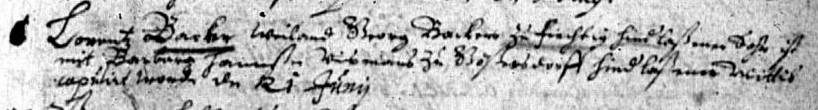 Lorentz Backer weiland Georg Backers zu Fiechtig hindlaßener Sohn ist
mit Barbara Hannsen zu hindlaßener Wittib
copulirt worden den 21 Junij